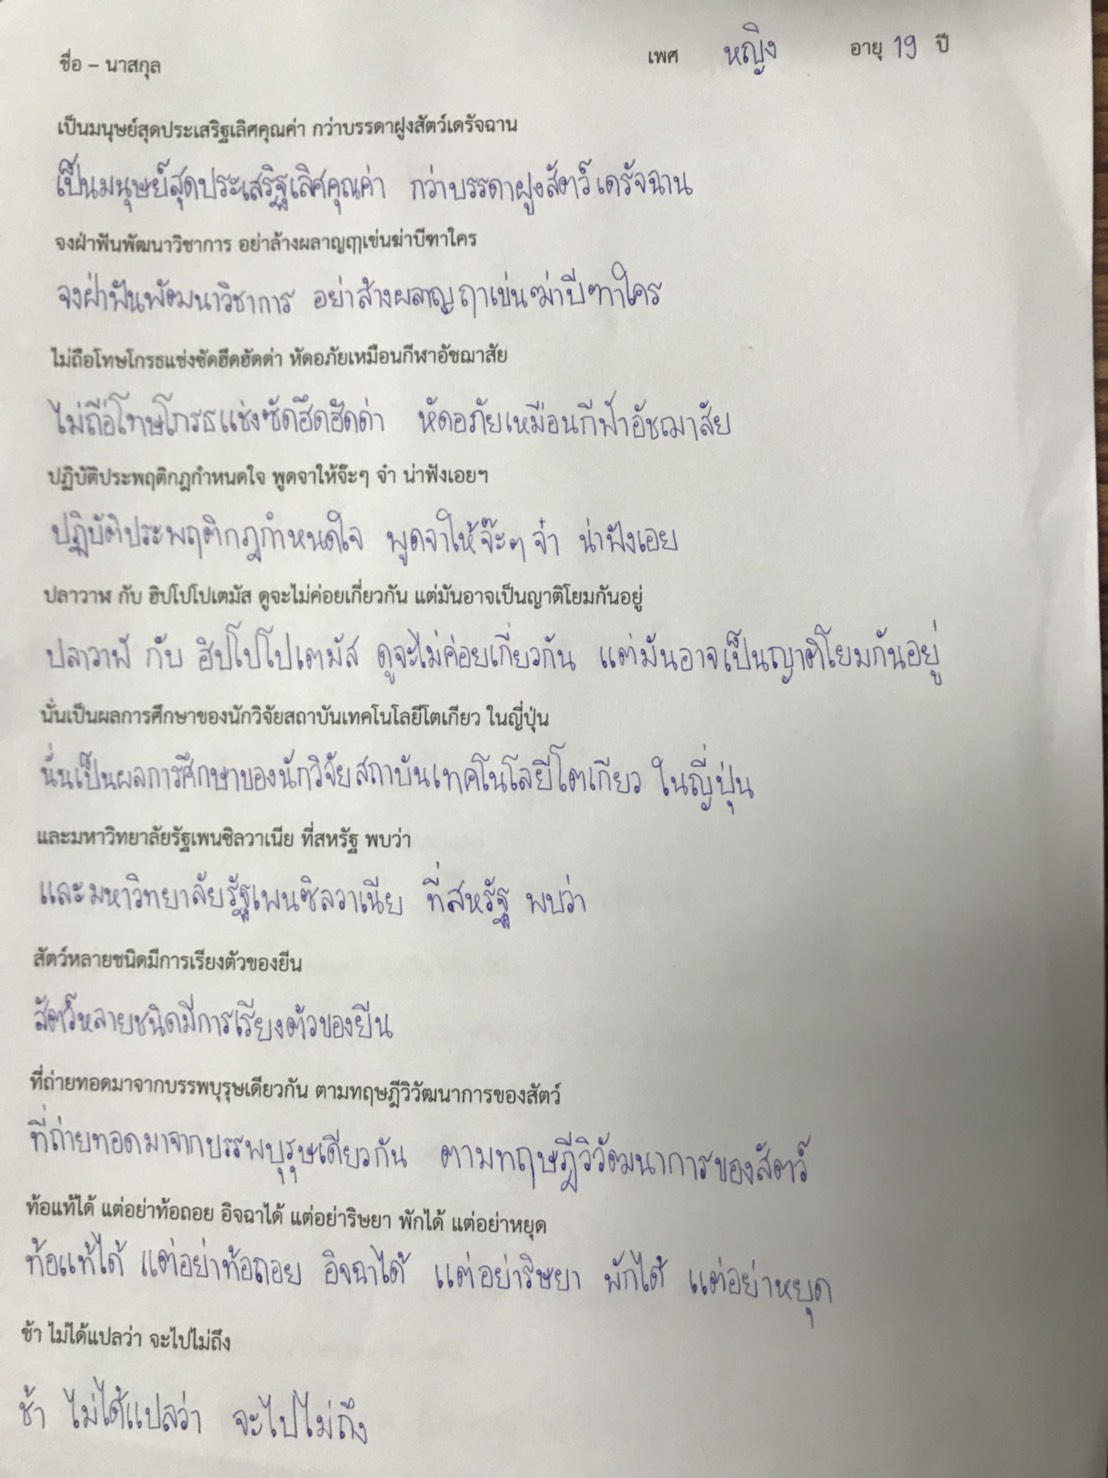 ชื่อ – นาสกุล เพศ หญิง อายุ 19 ปี
เป็นมนุษย์สุดประเสริฐเลิศคุณค่า กว่าบรรดาฝูงสัตว์เดรัจฉาน
เป็นมนุษย์สุดประเสริฐเลิศคุณค่า กว่าบรรดาฝูงสัตว์เดรัจฉาน
จงฝ่าฟันพัฒนาวิชาการ อย่าล้างผลาญฤๅเข่นฆ่าบีฑาใคร
จงฝ่าฟันพัฒนาวิชาการ อย่าล้างผลาญฤๅเข่นฆ่าบีฑาใคร
ไม่ถือโทษโกรธแช่งซัดฮึดฮัดด่า หัดอภัยเหมือนกีฬาอัชฌาสัย
ไม่ถือโทษโกรธแช่งซัดฮึดฮัดด่า หัดอภัยเหมือนกีฬาอัชฌาสัย
ปฏิบัติประพฤติกฎกำหนดใจ พูดจาให้จ๊ะๆ จ๋า น่าฟังเอยฯ
ปฏิบัติประพฤติกฎกำหนดใจ พูดจาให้จ๊ะๆ จ๋า น่าฟังเอย
ปลาวาฬ กับ ฮิปโปโปเตมัส ดูจะไม่ค่อยเกี่ยวกัน แต่มันอาจเป็นญาติโยมกันอยู่
ปลาวาฬ กับ ฮิปโปโปเตมัส ดูจะไม่ค่อยเกี่ยวกัน แต่มันอาจเป็นญาติโยมกันอยู่
นั่นเป็นผลการศึกษาของนักวิจัยสถาบันเทคโนโลยีโตเกียว ในญี่ปุ่น
นั่นเป็นผลการศึกษาของนักวิจัยสถาบันเทคโนโลยีโตเกียว ในญี่ปุ่น
และมหาวิทยาลัยรัฐเพนซิลวาเนีย ที่สหรัฐ พบว่า
และมหาวิทยาลัยรัฐเพนซิลวาเนีย ที่สหรัฐ พบว่า
สัตว์หลายชนิดมีการเรียงตัวของยีน
สัตว์หลายชนิดมีการเรียงตัวของยีน
ที่ถ่ายทอดมาจากบรรพบุรุษเดียวกัน ตามทฤษฎีวิวัฒนาการของสัตว์
ที่ถ่ายทอดมาจากบรรพบุรุษเดียวกัน ตามทฤษฎีวิวัฒนาการของสัตว์
ท้อแท้ได้ แต่อย่าท้อถอย อิจฉาได้ แต่อย่าริษยา พักได้ แต่อย่าหยุด
ท้อแท้ได้ แต่อย่าท้อถอย อิจฉาได้ แต่อย่าริษยา พักได้ แต่อย่าหยุด
ช้า ไม่ได้แปลว่า จะไปไม่ถึง
ช้า ไม่ได้แปลว่า จะไปไม่ถึง